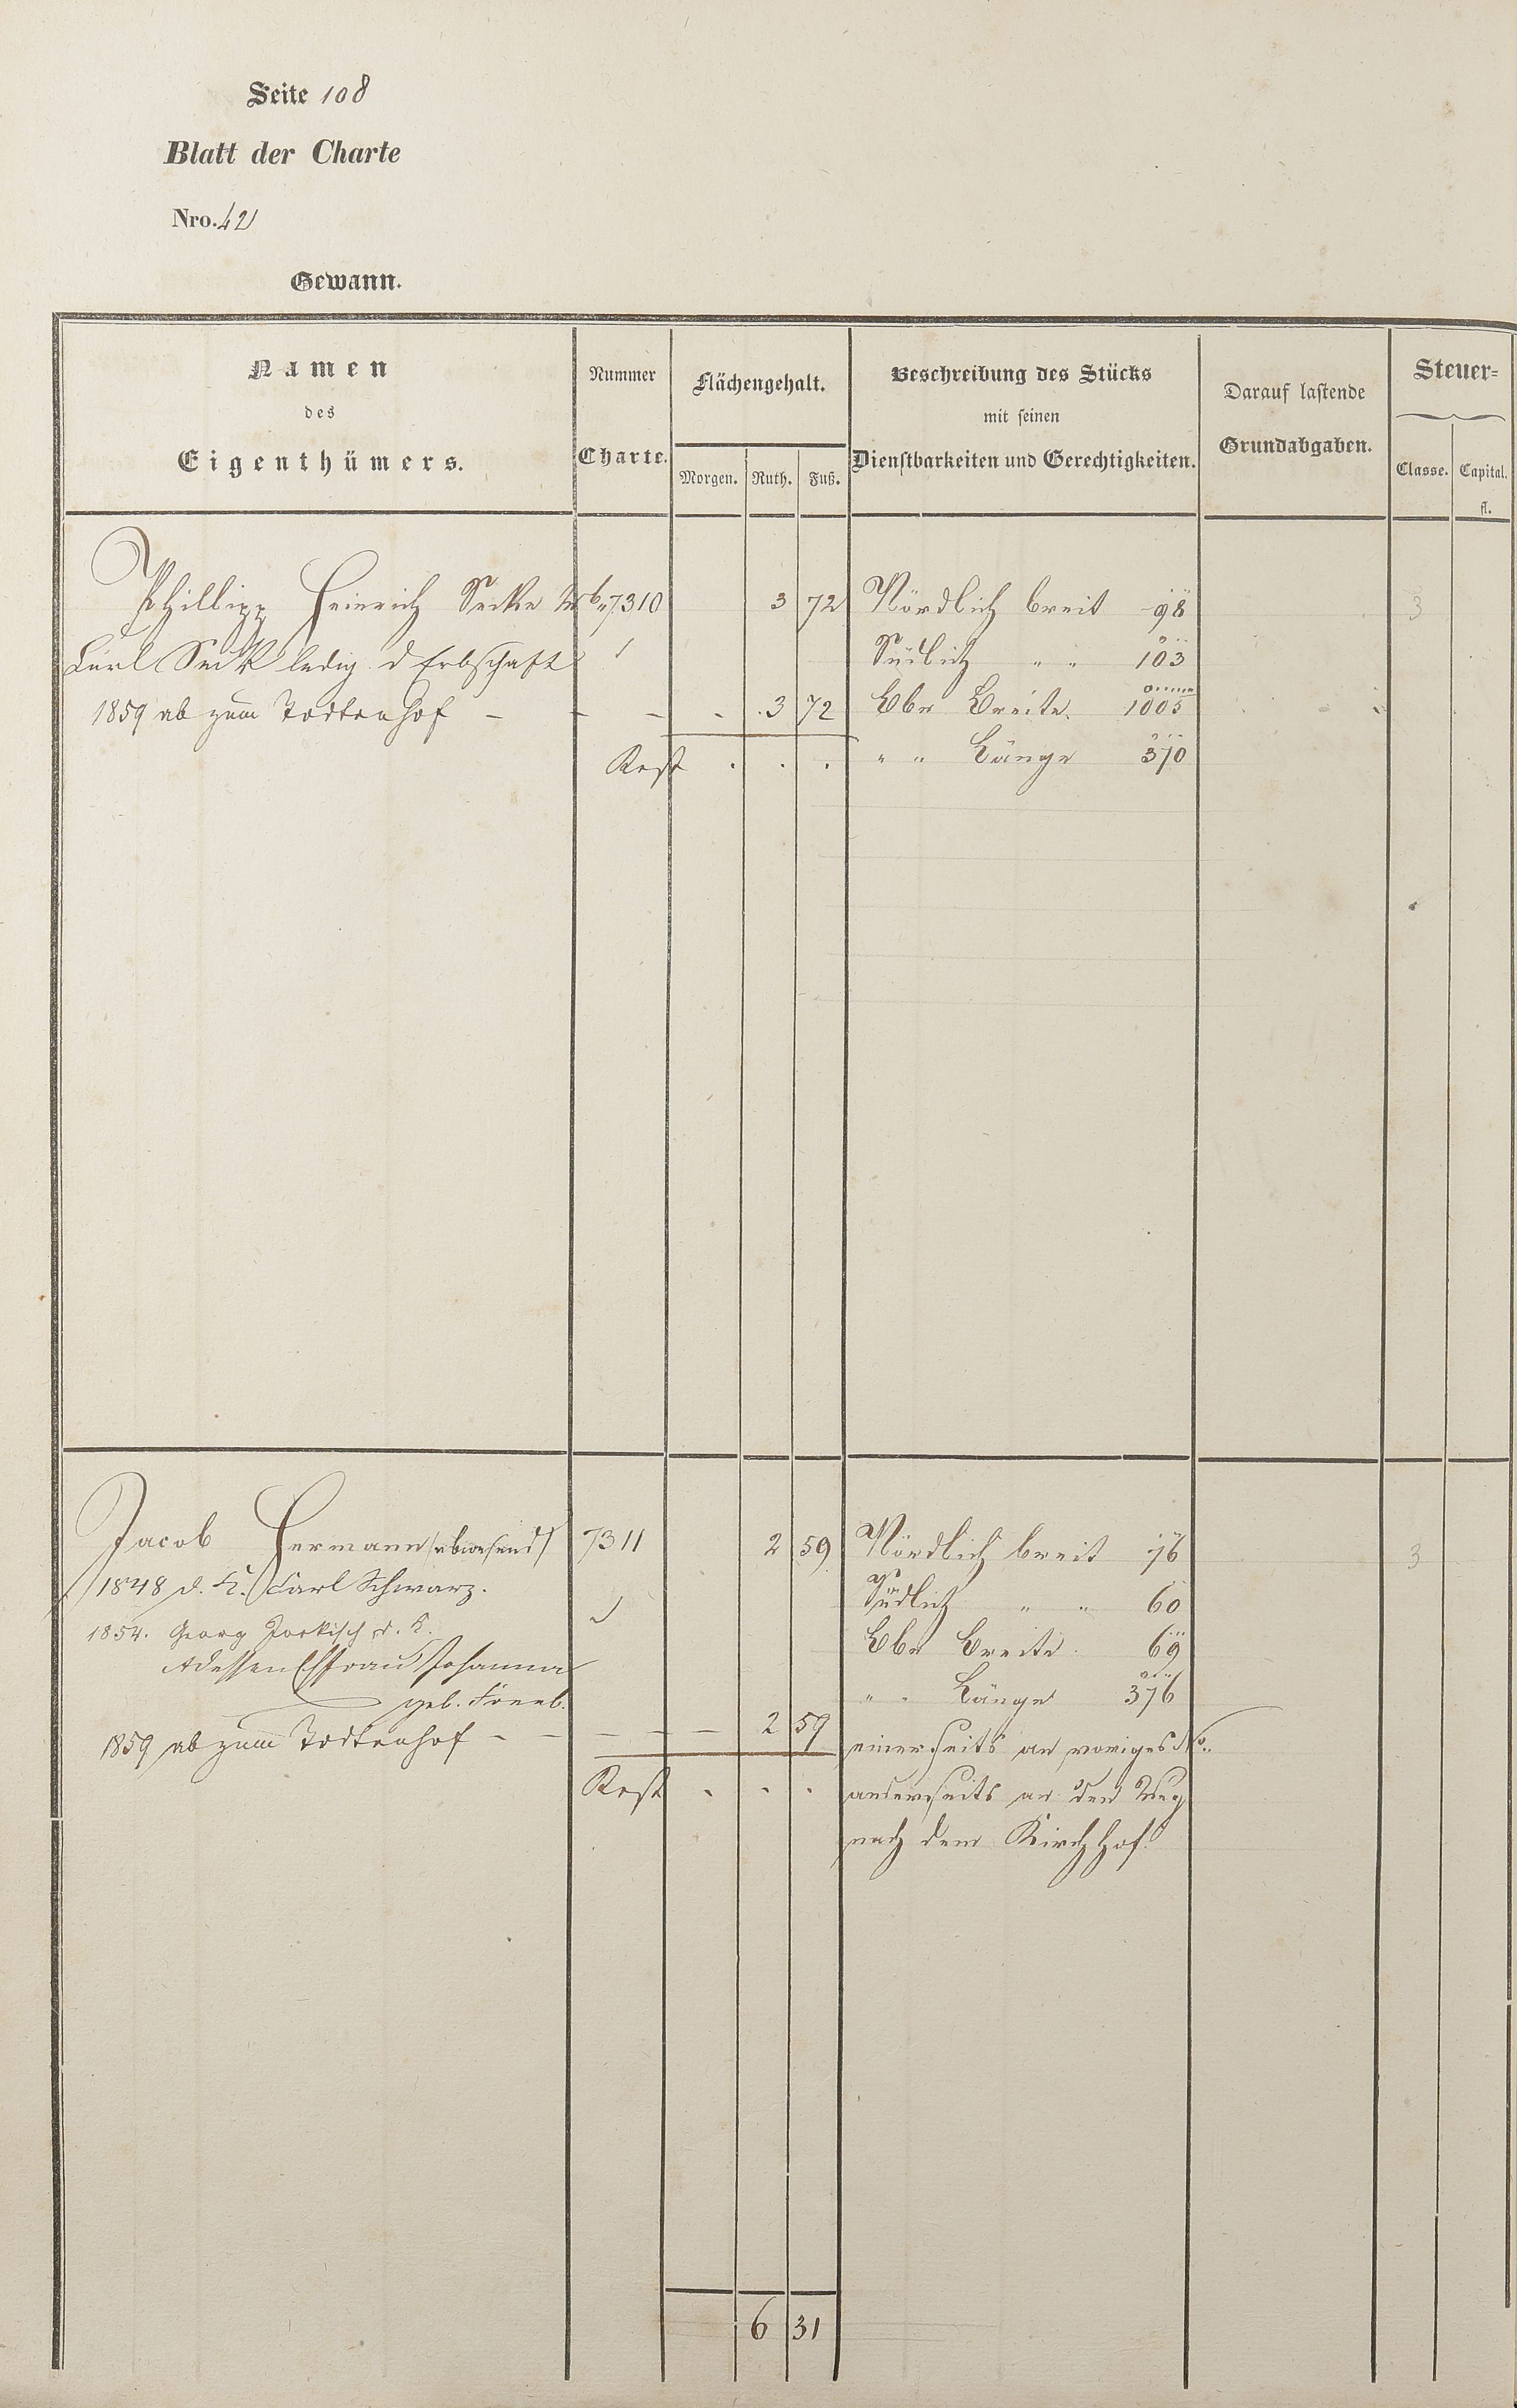 Seite 108
Blatt der Charte
Nro. 42
Gewann.
Namen
des
Eigenthümers.
Nummer
Charte.
Flächengehalt.
Morgen. Ruth. Fuß.
Beschreibung des Stücks
mit seinen
Dienstbarkeiten und Gerechtigkeiten.
Darauf lastende
Grundabgaben.
Steuer=
Classe. Capital.
fl.
Phillipp Heinrich 7310 3 72 Nördlich breit 98 3
ledig d Erbschaft Südlich " " 103
1859 ab zum Todtenhof - - - - 3 72 Ebr Breite. 1005
Rest . . . " " Länge 370
Jacob Hermann (abwesend) 7311 2 59 Nördlich breit 76 3
1848 d. K. Carl Schwarz. Südlich " " 60
1854. Georg d. K. Ebr Breite 69
Ehfrau Johanna " " Länge 376
geb.
1859 ab zum Todtenhof - - - - - 2 59 einerseits an voriges No.
Rest . . . anderseits an den Weg
nach dem Kirchhof.
6 31